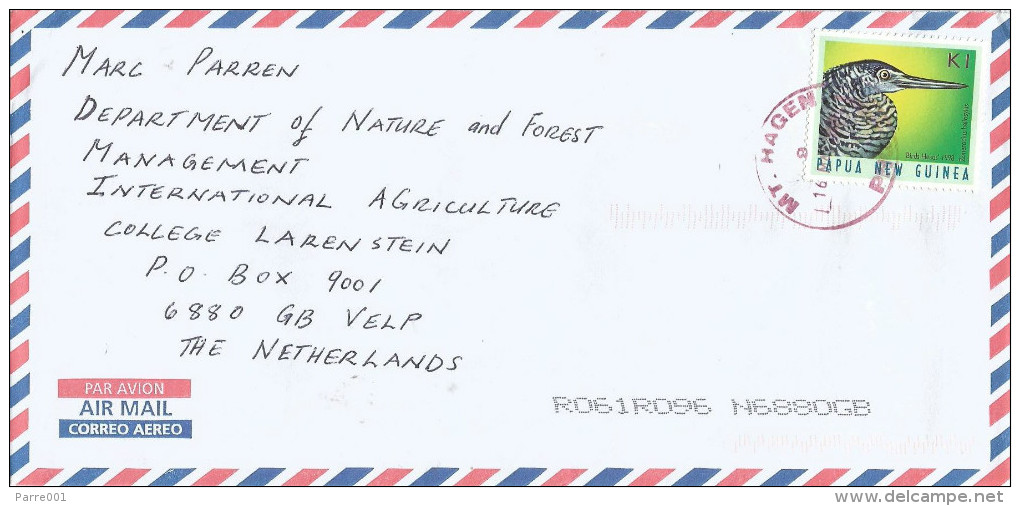 MARC PARREN
DEPARTMENT of NATURE and FOREST
MANAGEMENT
INTERNATIONAL AGRICULTURE
COLLEGE LARENSTEIN
P.O. BOX 9001
6880 GB VELP
THE NETHERLANDS
K1
PAPUA NEW GUINEA
MT. HAGEN
PAR AVION
AIR MAIL
CORREO AEREO
R061R096 N6880GB
Parre001
www.delcampe.net